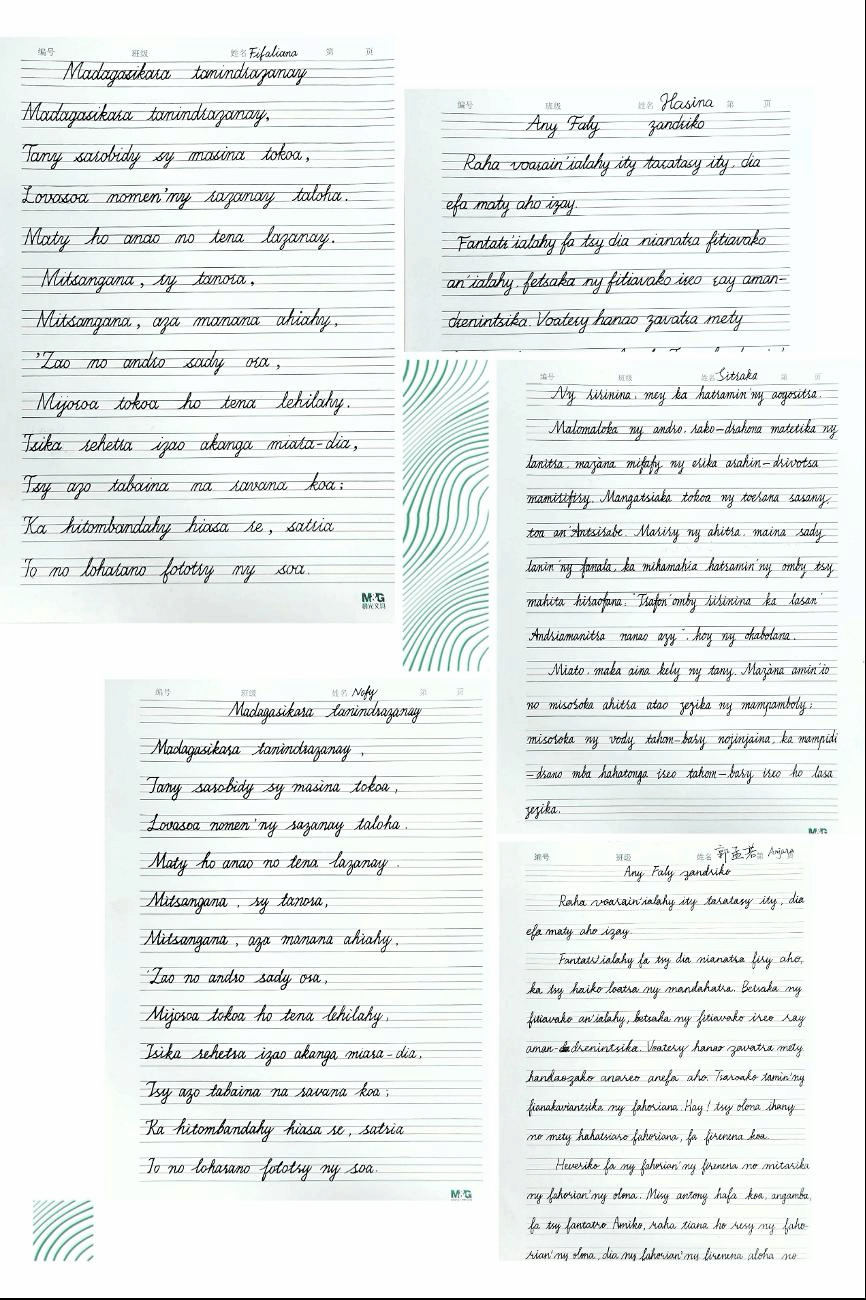 编号 班级 姓名 Fifaliana 第 页
Madagasikara tanindrazanay
Madagasikara tanindrazanay,
Tany sarobidy sy masina tokoa,
Lovasoa nomen'ny razanay taloha.
Maty ho anao no tena lazanay.
Mitsangana, ry tanora,
Mitsangana, aza manana ahiahy,
'Zao no andro sady ora,
Mijoroa tokoa ho tena lehilahy.
Isika rehetra izao akanga miara-dia,
Tsy azo tabaina na ravana koa;
Ka hitombandahy hiasa re, satria
Io no loharano fototry ny soa.
M&G
晨光文具
编号 班级 姓名 Hasina 第 页
Any Faly zandriko
Raha voarain'ialahy ity taratasy ity, dia
efa maty aho izay.
Fantatr'ialahy fa tsy dia nianatra fitiavako
an'ialahy, fetsaka ny fitiavako ireo ray aman-
drenintsika. Voatery hanao zavatra mety
编号 班级 姓名 Sitraka 第 页
Ny ririnina, mey ka hatramin'ny aogositra.
Malomaloka ny andro, rako-drahona matetika ny
lanitra, mazàna mifafy ny erika arahin-drivotsa
mamirifiry. Mangatsiaka tokoa ny toerana sasany,
toa an'Antsirabe. Mariry ny ahitra, maina sady
lanin'ny fanala, ka mihamahia hatramin'ny omby tsy
mahita hiraofana: "Tsafon'omby ririnina ka lasan'
Andriamanitra nanao azy", hoy ny ohabolana.
Miato, maka aina kely ny tany. Mazàna amin'io
no misoroka ahitra atao zezika ny mampamboly;
misoroka ny vody taham-bary nojinjaina, ka mampidi
-drano mba hahatonga ireo taham-bary ireo ho lasa
zezika.
M&G
编号 班级 姓名 Nofy 第 页
Madagasikara tanindrazanay
Madagasikara tanindrazanay,
Tany sarobidy sy masina tokoa,
Lovasoa nomen'ny razanay taloha.
Maty ho anao no tena lazanay.
Mitsangana, ry tanora,
Mitsangana, aza manana ahiahy,
'Zao no andro sady ora,
Mijoroa tokoa ho tena lehilahy.
Isika rehetra izao akanga miara-dia,
Tsy azo tabaina na ravana koa;
Ka hitombandahy hiasa re, satria
Io no loharano fototry ny soa.
M&G
编号 班级 姓名 郭孟若 第 Anjara 页
Any Faly zandriko
Raha voarain'ialahy ity taratasy ity, dia
efa maty aho izay.
Fantatr'ialahy fa tsy dia nianatra firy aho,
ka tsy haiko loatra ny mandahatra. Betsaka ny
fitiavako an'ialahy, betsaka ny fitiavako ireo ray
aman-drenintsika. Voatery hanao zavatra mety
handaozako anareo anefa aho. Tsaroako tamin'ny
fianakaviantsika ny fahoriana. Hay! tsy olona ihany
no mety hahatsiaro fahoriana, fa firenena koa.
Heveriko fa ny fahorian'ny firenena no mitarika
ny fahorian'ny olona. Misy antony hafa koa, angamba,
fa tsy fantatro. Amiko, raha tiana ho resy ny faho-
rian'ny olona, dia ny fahorian'ny firenena aloha no